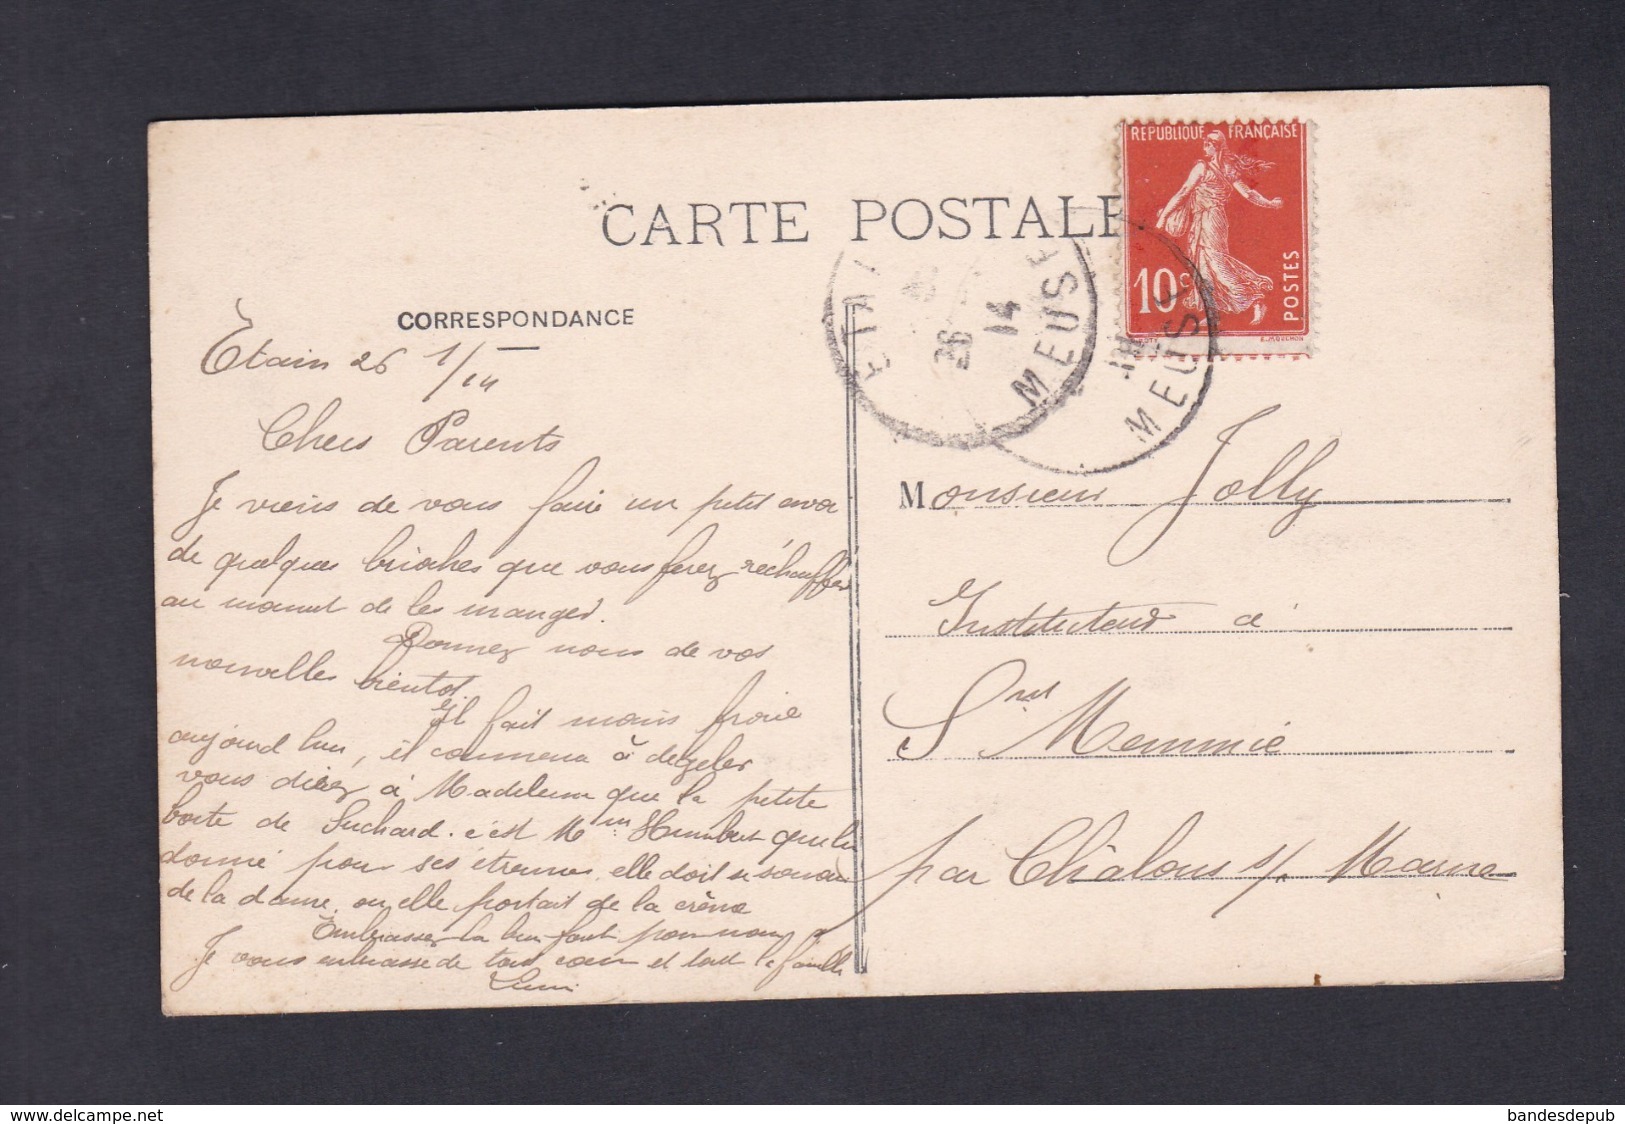 CARTE POSTALE
REPUBLIQUE FRANÇAISE
10c
POSTES
E. MOUCHON
ETAI
26
14
MEUSE
MEUSE
CORRESPONDANCE
Etain 26 1/14
Chers Parents
Je viens de vous faire un petit
de quelques brioches que vous ferez réchauffer
au moment de les manger.
Donnez nous de vos
nouvelles bientot.
Il fait moins froid
aujourd hui, il commence à degeler
vous direz à Madeleine que la petite
boite de Suchard. c'est Mme Humbert qui lui
donné pour ses étrennes. elle doit se souvenir
de la dame ou elle portait de la crème
Embrassez-la bien fort pour nous
Je vous embrasse de tout coeur et toute la famille
Monsieur Jolly
Instituteur à
St Memmie
par Châlons s/ Marne
www.delcampe.net
bandesdepub